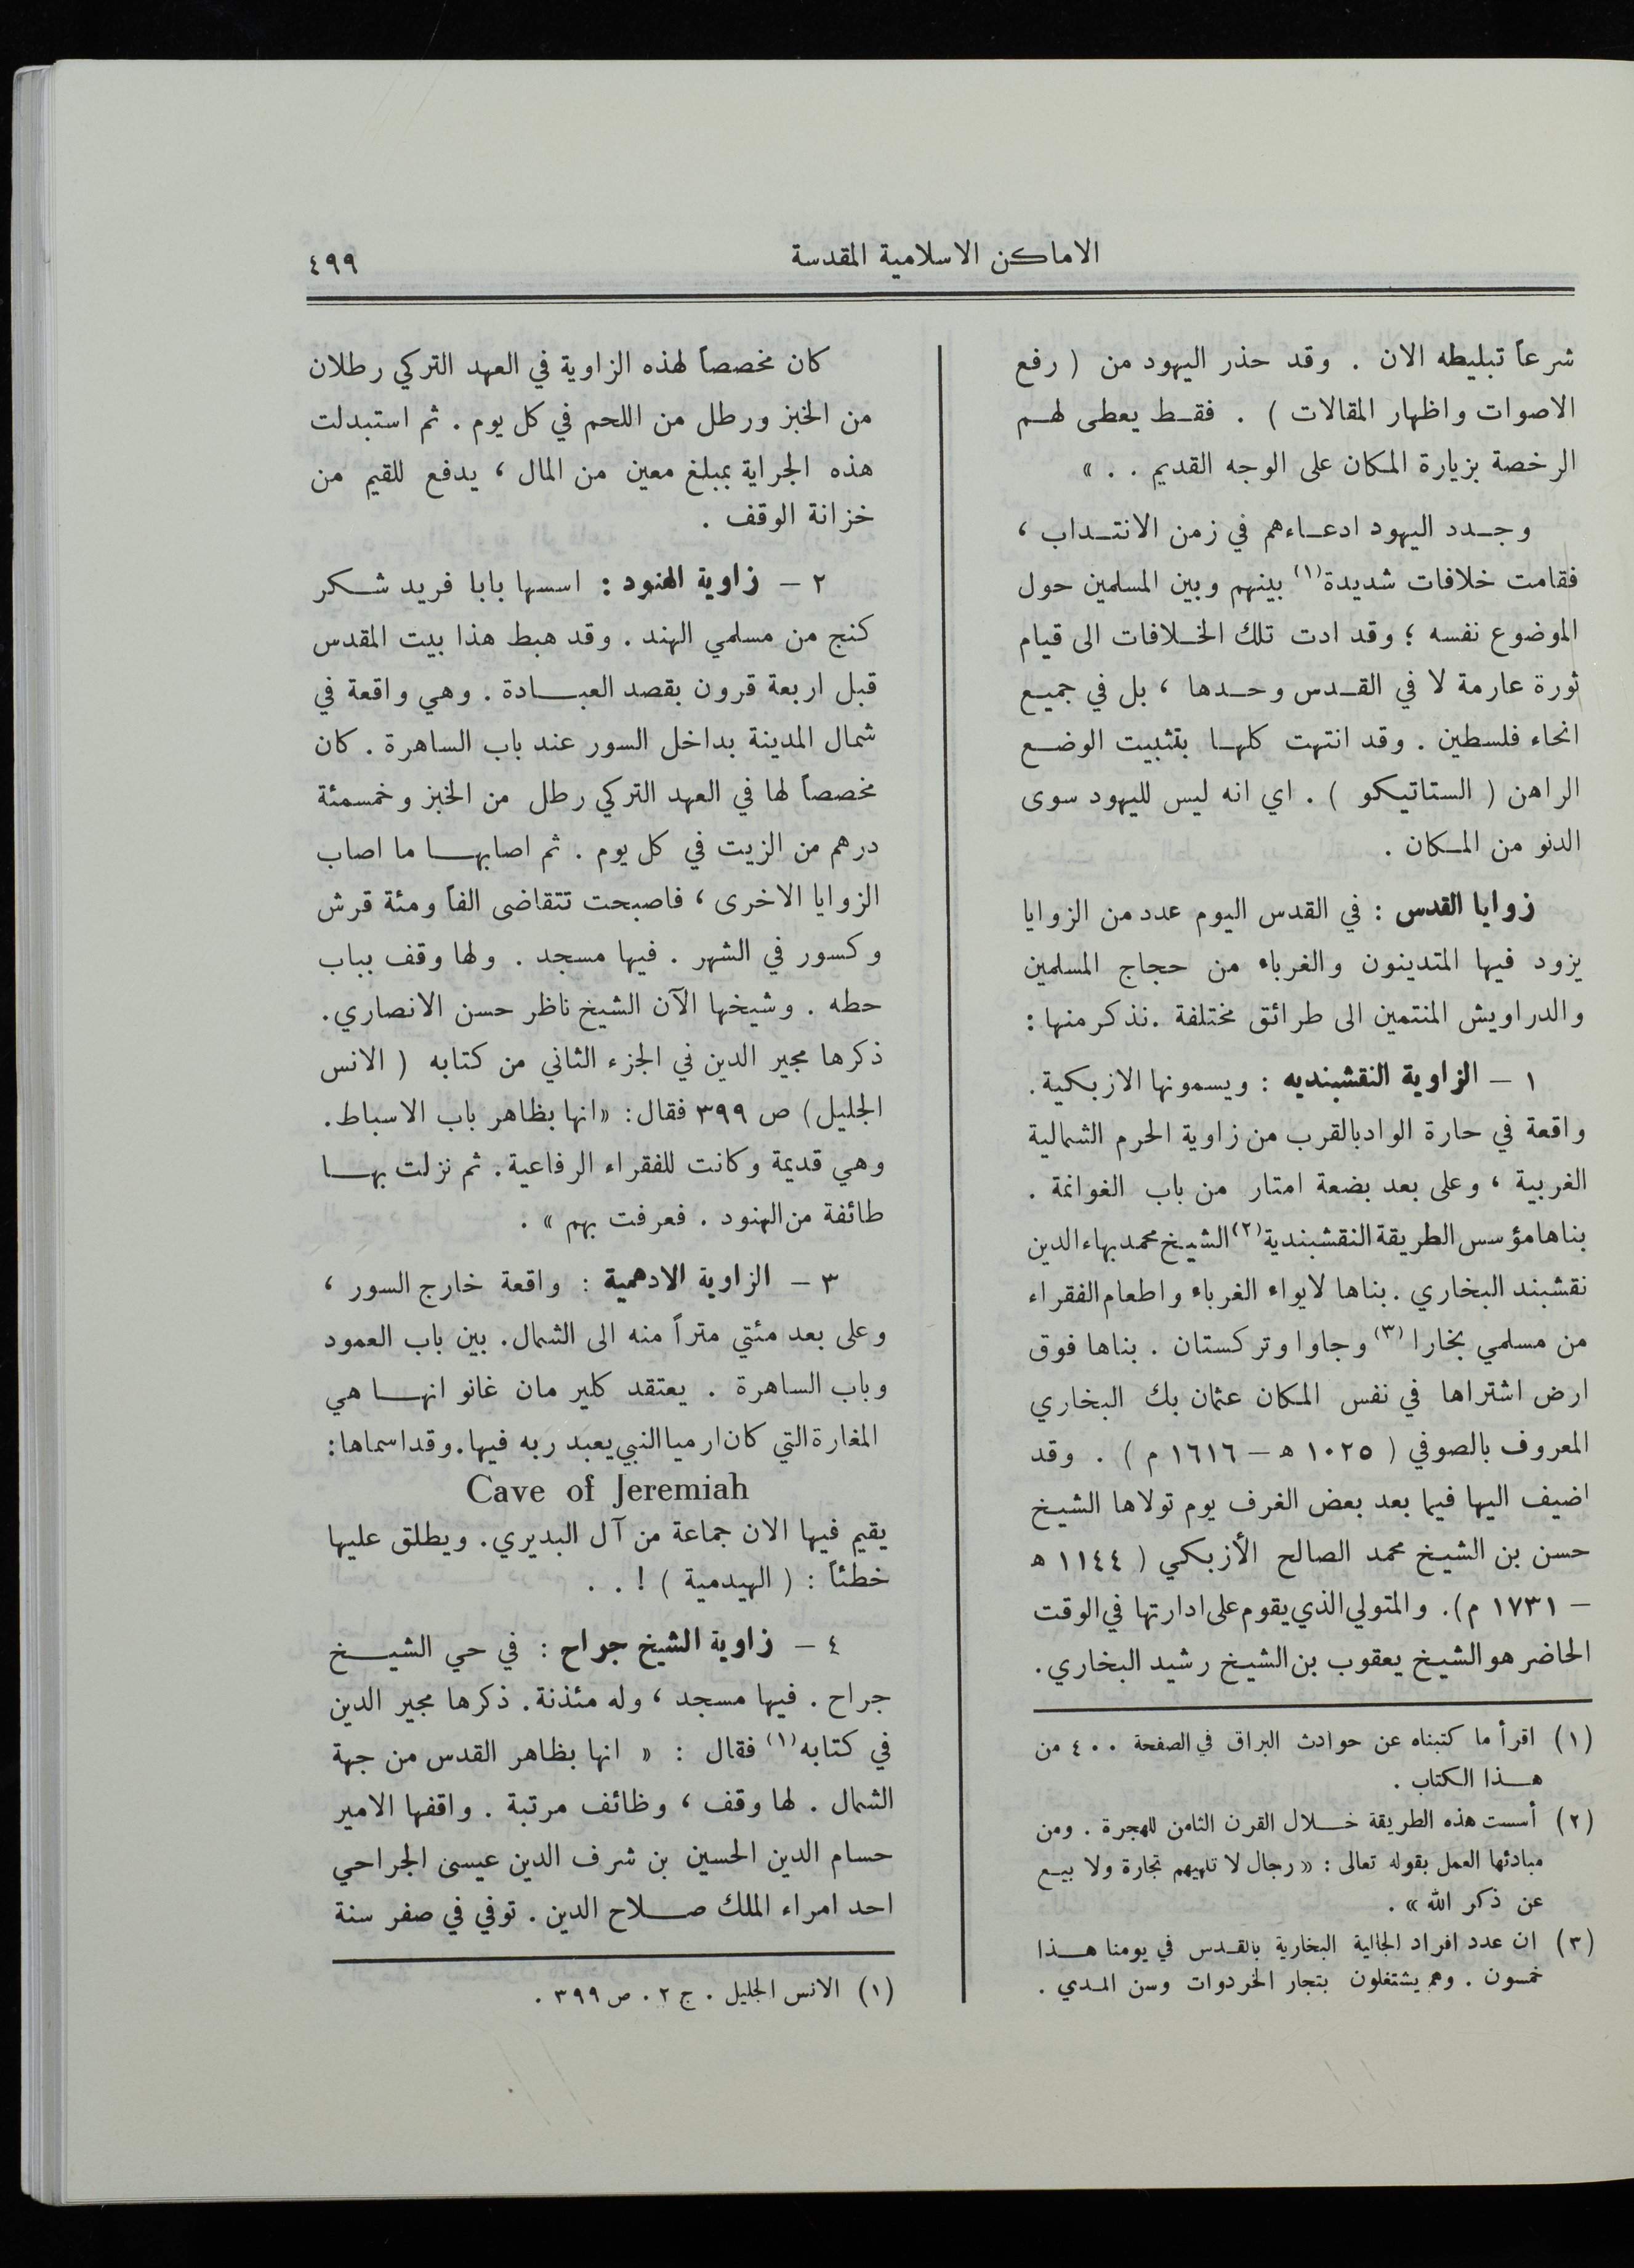 الاماكن الاسلامية المقدسة
٤٩٩
شرعاً تبليطه الان . وقد حذر اليهود من ( رفع
الاصوات واظهار المقالات ) . فقط يعطى لهم
الرخصة بزيارة المكان على الوجه القديم . . »
وجدد اليهود ادعاءهم في زمن الانتداب ،
فقامت خلافات شديدة(١) بينهم وبين المسلمين حول
الموضوع نفسه ؛ وقد ادت تلك الخلافات الى قيام
ثورة عارمة لا في القدس وحدها ، بل في جميع
انحاء فلسطين . وقد انتهت كلها بتثبيت الوضع
الراهن ( الستاتيكو ) . اي انه ليس لليهود سوى
الدنو من المكان .
زوايا القدس : في القدس اليوم عدد من الزوايا
يزود فيها المتدينون والغرباء من حجاج المسلمين
والدراويش المنتمين الى طرائق مختلفة . نذكر منها :
١ – الزاوية النقشبنديه : ويسمونها الازبكية .
واقعة في حارة الواد بالقرب من زاوية الحرم الشمالية
الغربية ، وعلى بعد بضعة امتار من باب الغوانمة .
بناها مؤسس الطريقة النقشبندية(٢) الشيخ محمد بهاء الدين
نقشبند البخاري . بناها لايواء الغرباء واطعام الفقراء
من مسلمي بخارا (٣) وجاوا وتركستان . بناها فوق
ارض اشتراها في نفس المكان عثمان بك البخاري
المعروف بالصوفي ( ١٠٢٥ ه – ١٦١٦ م ) . وقد
اضيف اليها فيما بعد بعض الغرف يوم تولاها الشيخ
حسن بن الشيخ محمد الصالح الأزبكي ( ١١٤٤ ه
– ١٧٣١ م ) . والمتولي الذي يقوم على ادارتها في الوقت
الحاضر هو الشيخ يعقوب بن الشيخ رشيد البخاري .
(١) اقرأ ما كتبناه عن حوادث البراق في الصفحة ٤٠٠ من
هذا الكتاب .
(٢) أسست هذه الطريقة خلال القرن الثامن للهجرة . ومن
مبادئها العمل بقوله تعالى : « رجال لا تلهيهم تجارة ولا بيع
عن ذكر الله » .
(٣) ان عدد افراد الجالية البخارية بالقدس في يومنا هذا
خمسون . وهم يشتغلون بتجار الخردوات وسن المدي .
كان مخصصاً لهذه الزاوية في العهد التركي رطلان
من الخبز ورطل من اللحم في كل يوم . ثم استبدلت
هذه الجراية بمبلغ معين من المال ، يدفع للقيم من
خزانة الوقف .
٢ – زاوية الهنود : اسسها بابا فريد شكر
كنج من مسلمي الهند . وقد هبط هذا بيت المقدس
قبل اربعة قرون بقصد العبادة . وهي واقعة في
شمال المدينة بداخل السور عند باب الساهرة . كان
مخصصاً لها في العهد التركي رطل من الخبز وخمسمئة
درهم من الزيت في كل يوم . ثم اصابها ما اصاب
الزوايا الاخرى ، فاصبحت تتقاضى الفاً ومئة قرش
وكسور في الشهر . فيها مسجد . ولها وقف بباب
حطه . وشيخها الآن الشيخ ناظر حسن الانصاري .
ذكرها مجير الدين في الجزء الثاني من كتابه ( الانس
الجليل ) ص ٣٩٩ فقال : « انها بظاهر باب الاسباط .
وهي قديمة وكانت للفقراء الرفاعية . ثم نزلت بها
طائفة من الهنود . فعرفت بهم » .
٣ – الزاوية الادهمية : واقعة خارج السور ،
وعلى بعد مئتي متراً منه الى الشمال . بين باب العمود
وباب الساهرة . يعتقد كلير مان غانو انها هي
المغارة التي كان ارميا النبي يعبد ربه فيها . وقد اسماها :
Cave of Jeremiah
يقيم فيها الان جماعة من آل البديري . ويطلق عليها
خطئاً : ( الهيدمية ) ! . .
٤ – زاوية الشيخ جراح : في حي الشيخ
جراح . فيها مسجد ، وله مئذنة . ذكرها مجير الدين
في كتابه(١) فقال : « انها بظاهر القدس من جهة
الشمال . لها وقف ، وظائف مرتبة . واقفها الامير
حسام الدين الحسين بن شرف الدين عيسى الجراحي
احد امراء الملك صلاح الدين . توفي في صفر سنة
(١) الانس الجليل . ج ٢ . ص ٣٩٩ .